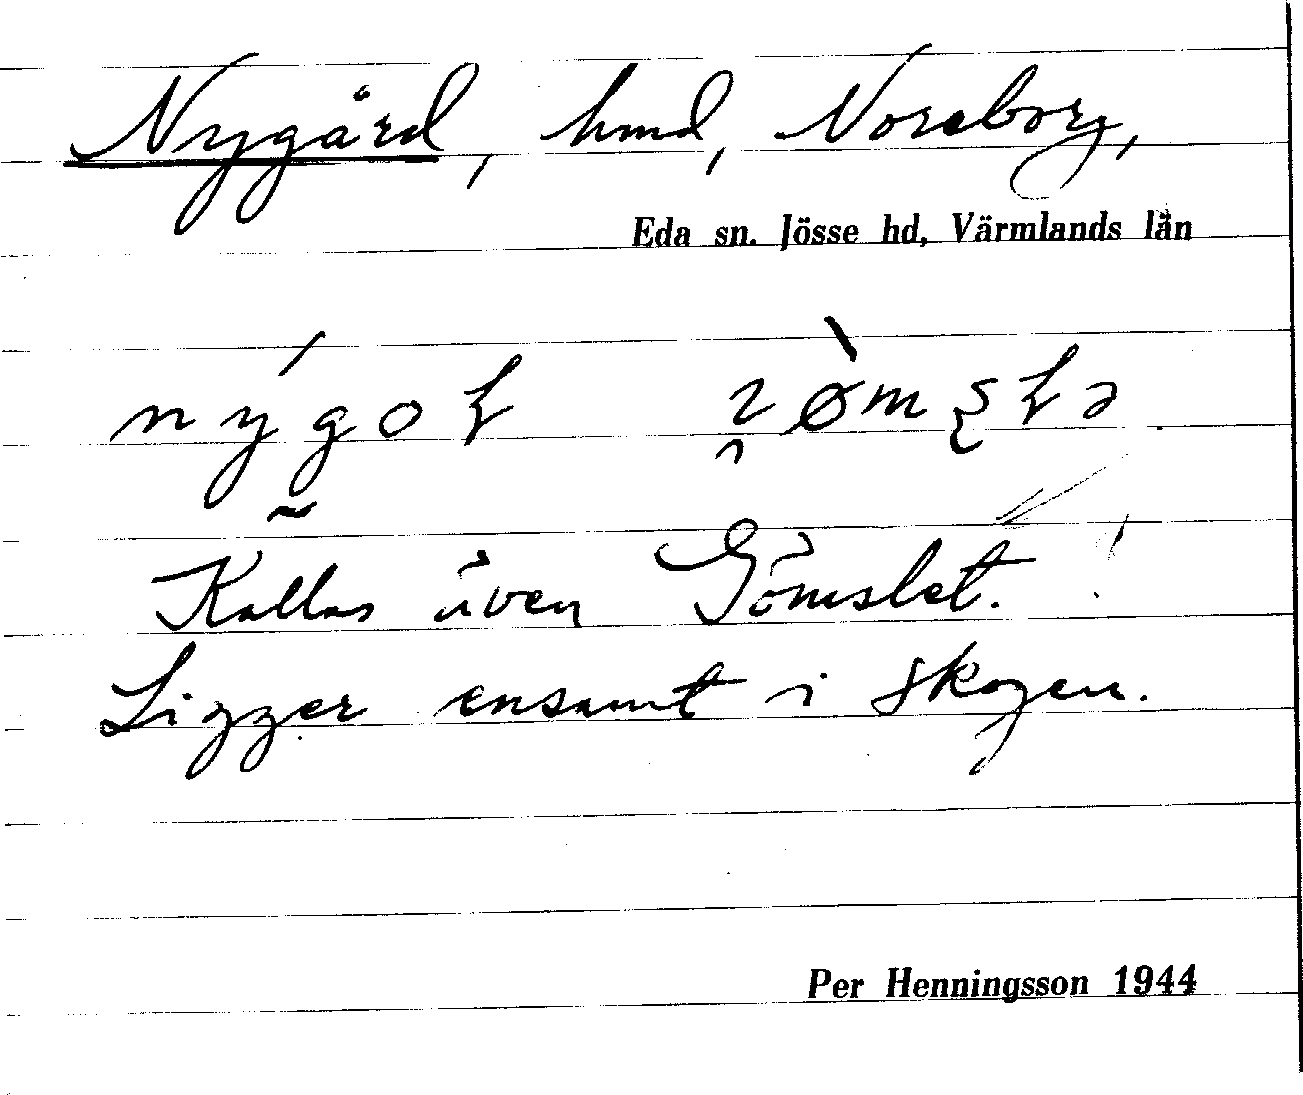 Nygård, hmd, Noreborg,
Eda sn. Jösse hd, Värmlands län
Kallas även Gömslet. !
Ligger ensamt i skogen.
Per Henningsson 1944